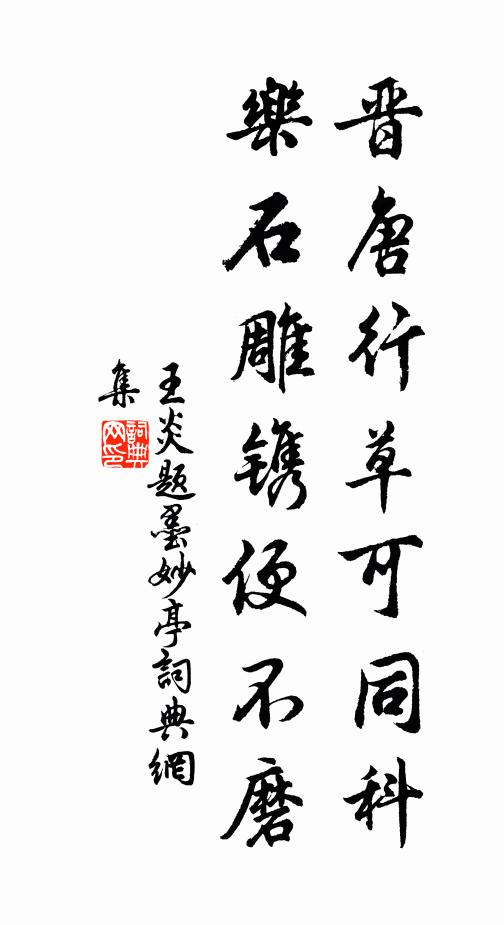 晋唐行草可同科
樂石雕镌便不磨
王炎题墨妙亭詞典網
集
詞典
网印